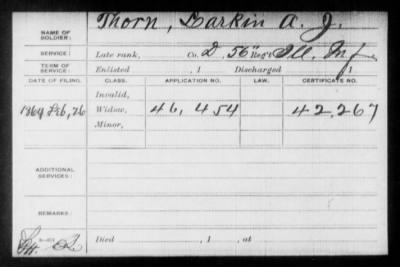 NAME OF SOLDIER: Thorn, Larkin A. J.
SERVICE: Late rank, Co. D, 56" Reg't Ill. Inf
TERM OF SERVICE: Enlisted , 1 Discharged , 1
DATE OF FILING. CLASS. APPLICATION NO. LAW. CERTIFICATE NO.
Invalid,
1864 Feb, 26 Widow, 46,454 42,267
Minor,
ADDITIONAL SERVICES:
REMARKS:
Died , 1 , at